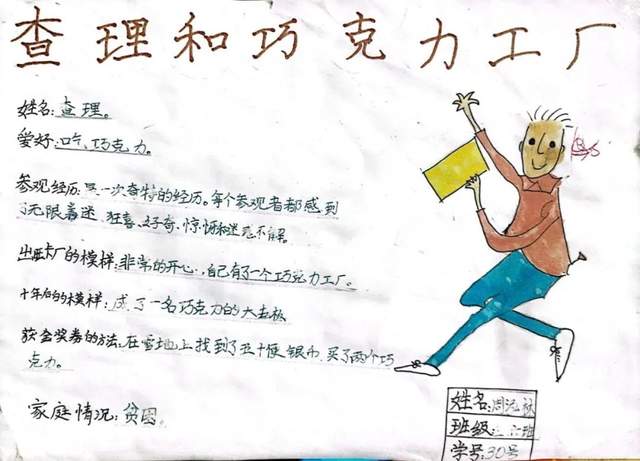 查理和巧克力工厂
姓名:查理。
爱好:吃、巧克力。
参观经历:是一次奇特的经历。每个参观者都感到
了无限着迷 狂喜、好奇、惊讶和迷惑不解。
出工厂的模样:非常的开心,自己有了一个巧克力工厂。
十年后的的模样:成了一名巧克力的大
获金奖券的方法:在雪地上找到了五十便银币 买了两个巧
克力。
家庭情况:贫困。
姓名:周
班级:二 班
学号:30号